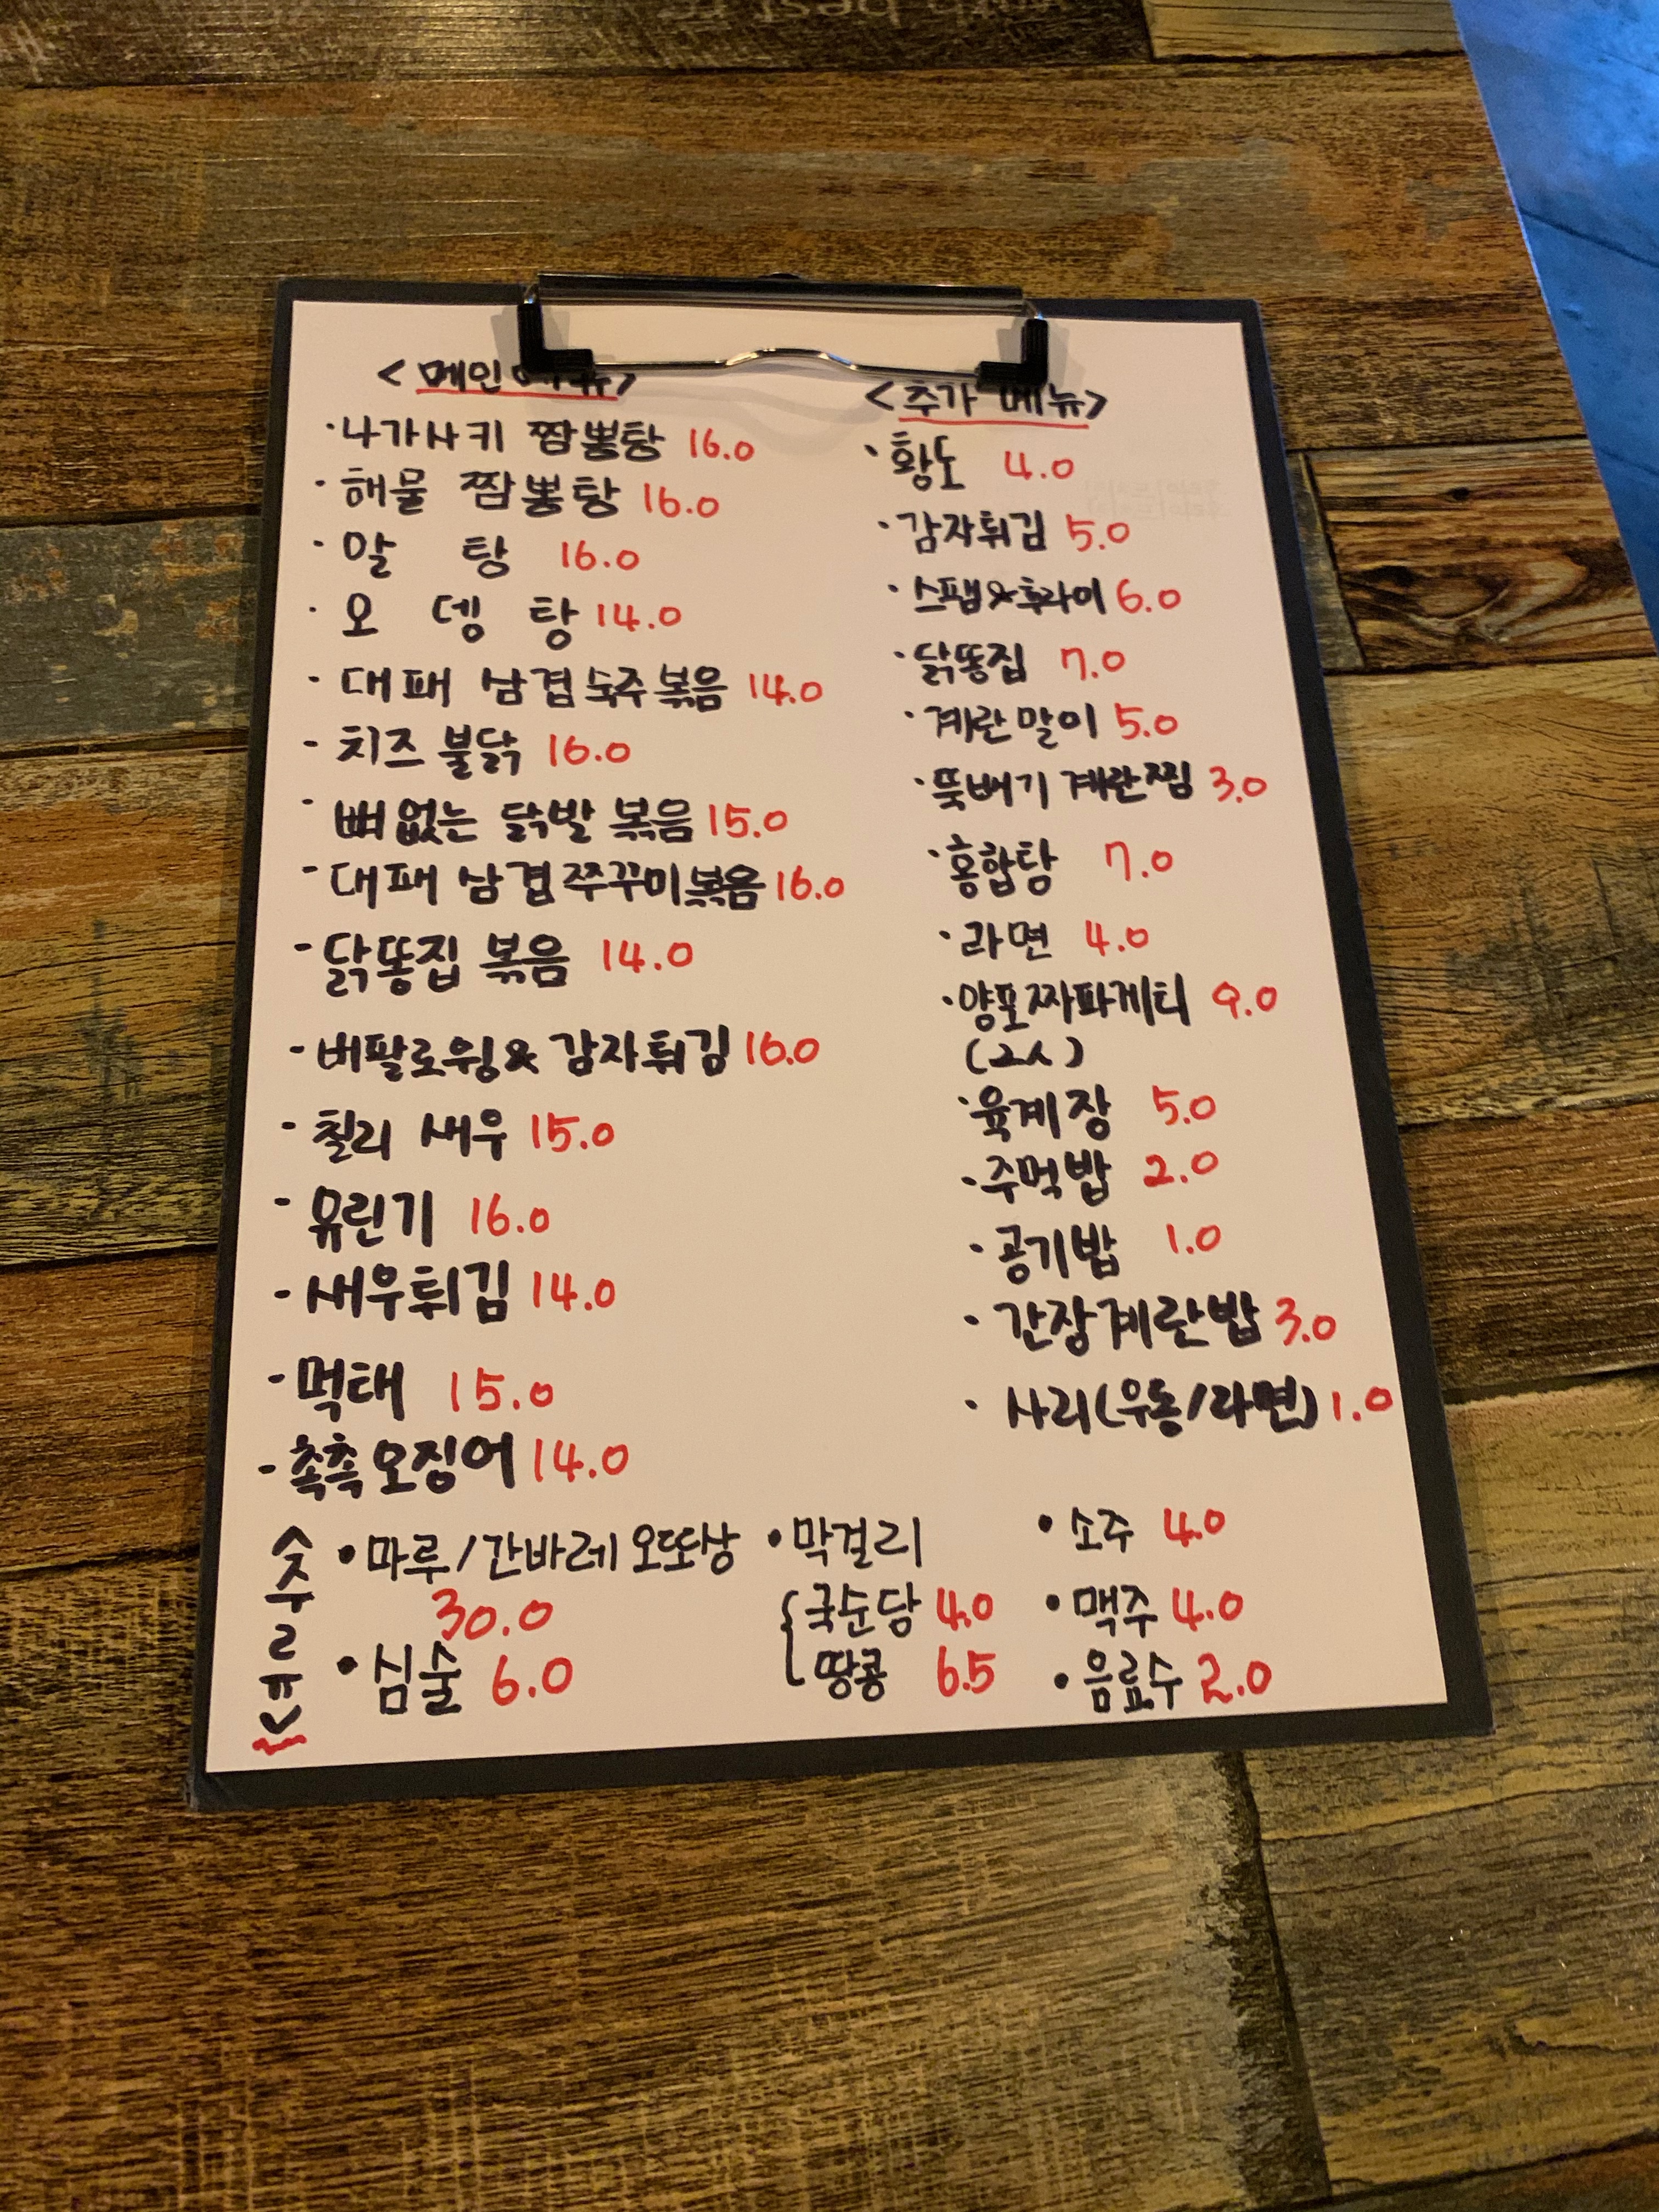 <메인 메뉴>
·나가사키 짬뽕탕 16.0
·해물 짬뽕탕 16.0
·알 탕 16.0
·오 뎅 탕 14.0
·대패 삼겹 숙주 볶음 14.0
-치즈 불닭 16.0
-뼈없는 닭발 볶음 15.0
-대패 삼겹 쭈꾸미볶음 16.0
-닭똥집 볶음 14.0
-버팔로윙& 감자튀김 16.0
-칠리 새우 15.0
-유린기 16.0
-새우튀김 14.0
-먹태 15.0
-촉촉오징어 14.0
<추가 메뉴>
·황도 4.0
·감자튀김 5.0
·스팸&후라이 6.0
·닭똥집 7.0
·계란말이 5.0
·뚝배기 계란찜 3.0
·홍합탕 7.0
·라면 4.0
·양푼짜파게티 9.0
(2人)
·육계장 5.0
·주먹밥 2.0
·공기밥 1.0
·간장계란밥 3.0
·사리(우동/라면) 1.0
<주류>
•마루/간바레 오또상
30.0
•심술 6.0
•막걸리
국순당 4.0
땅콩 6.5
•소주 4.0
•맥주 4.0
•음료수 2.0